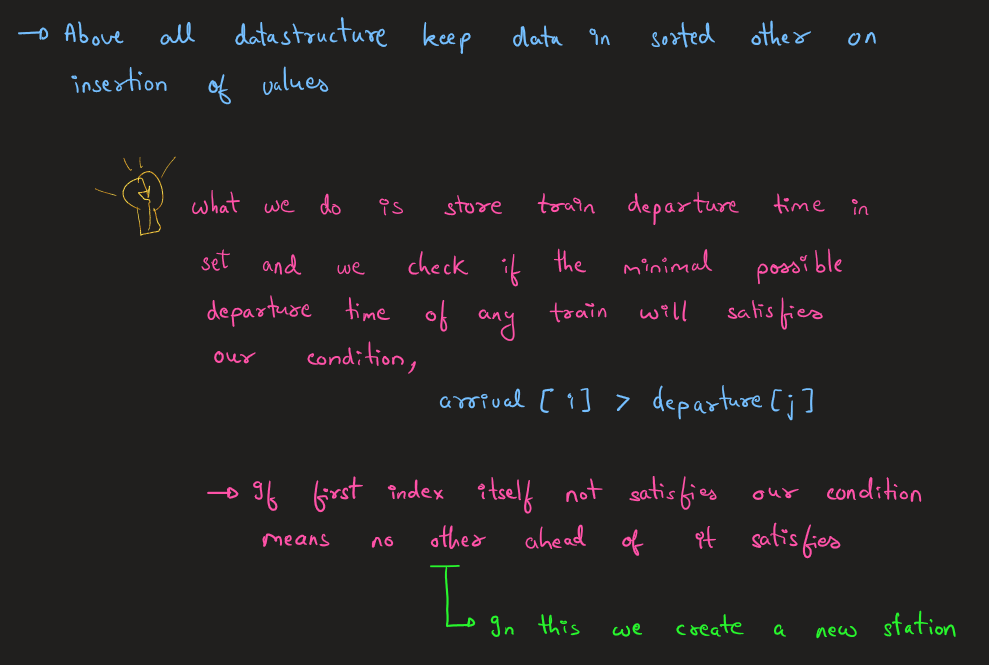 → Above all datastructure keep data in sorted other on
insertion of values
what we do is store train departure time in
set and we check if the minimal possible
departure time of any train will satisfies
our condition,
arrival [i] > departure [j]
→ If first index itself not satisfies our condition
means no other ahead of it satisfies
In this we create a new station